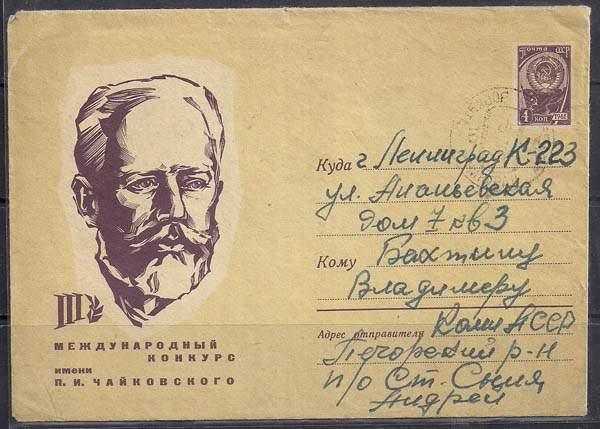 Почта СССР
4 КОП
Куда г. Ленинград К-223
ул. Апольевская
дом 7 кв 3
Кому Бахтину
Владимеру
Адрес отправителя Коми АССР
Печорский р-н
п/о Ст. Сыня
Андрей
III
МЕЖДУНАРОДНЫЙ
КОНКУРС
имени
П. И. ЧАЙКОВСКОГО